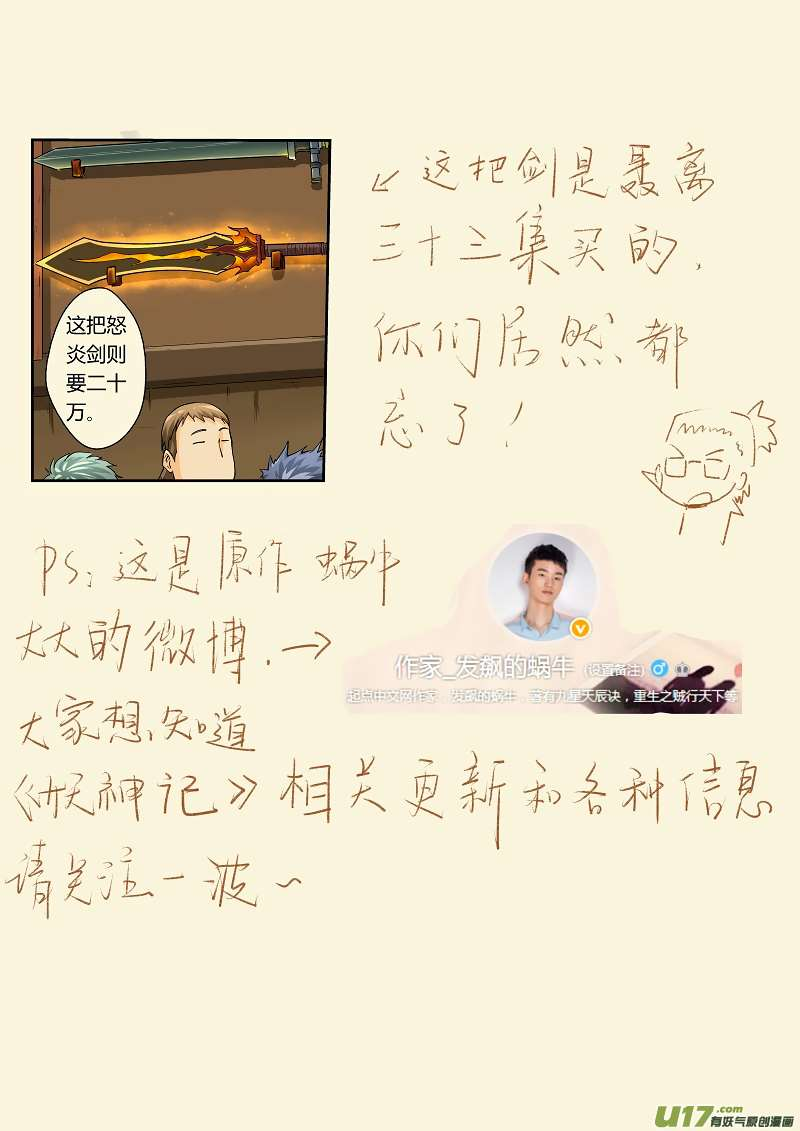 这把怒
炎剑则
要二十
万。
↙这把剑是聂离
三十三集买的,
你们居然都
忘了!
PS:这是原作 蜗牛
大大的微博.→
作家_发飙的蜗牛 (设置备注)
起点中文网作家,发飙的蜗牛,著有九星天辰诀,重生之贼行天下等
大家想知道
《妖神记》相关更新和各种信息
请关注一波~
U17.com
有妖气原创漫画